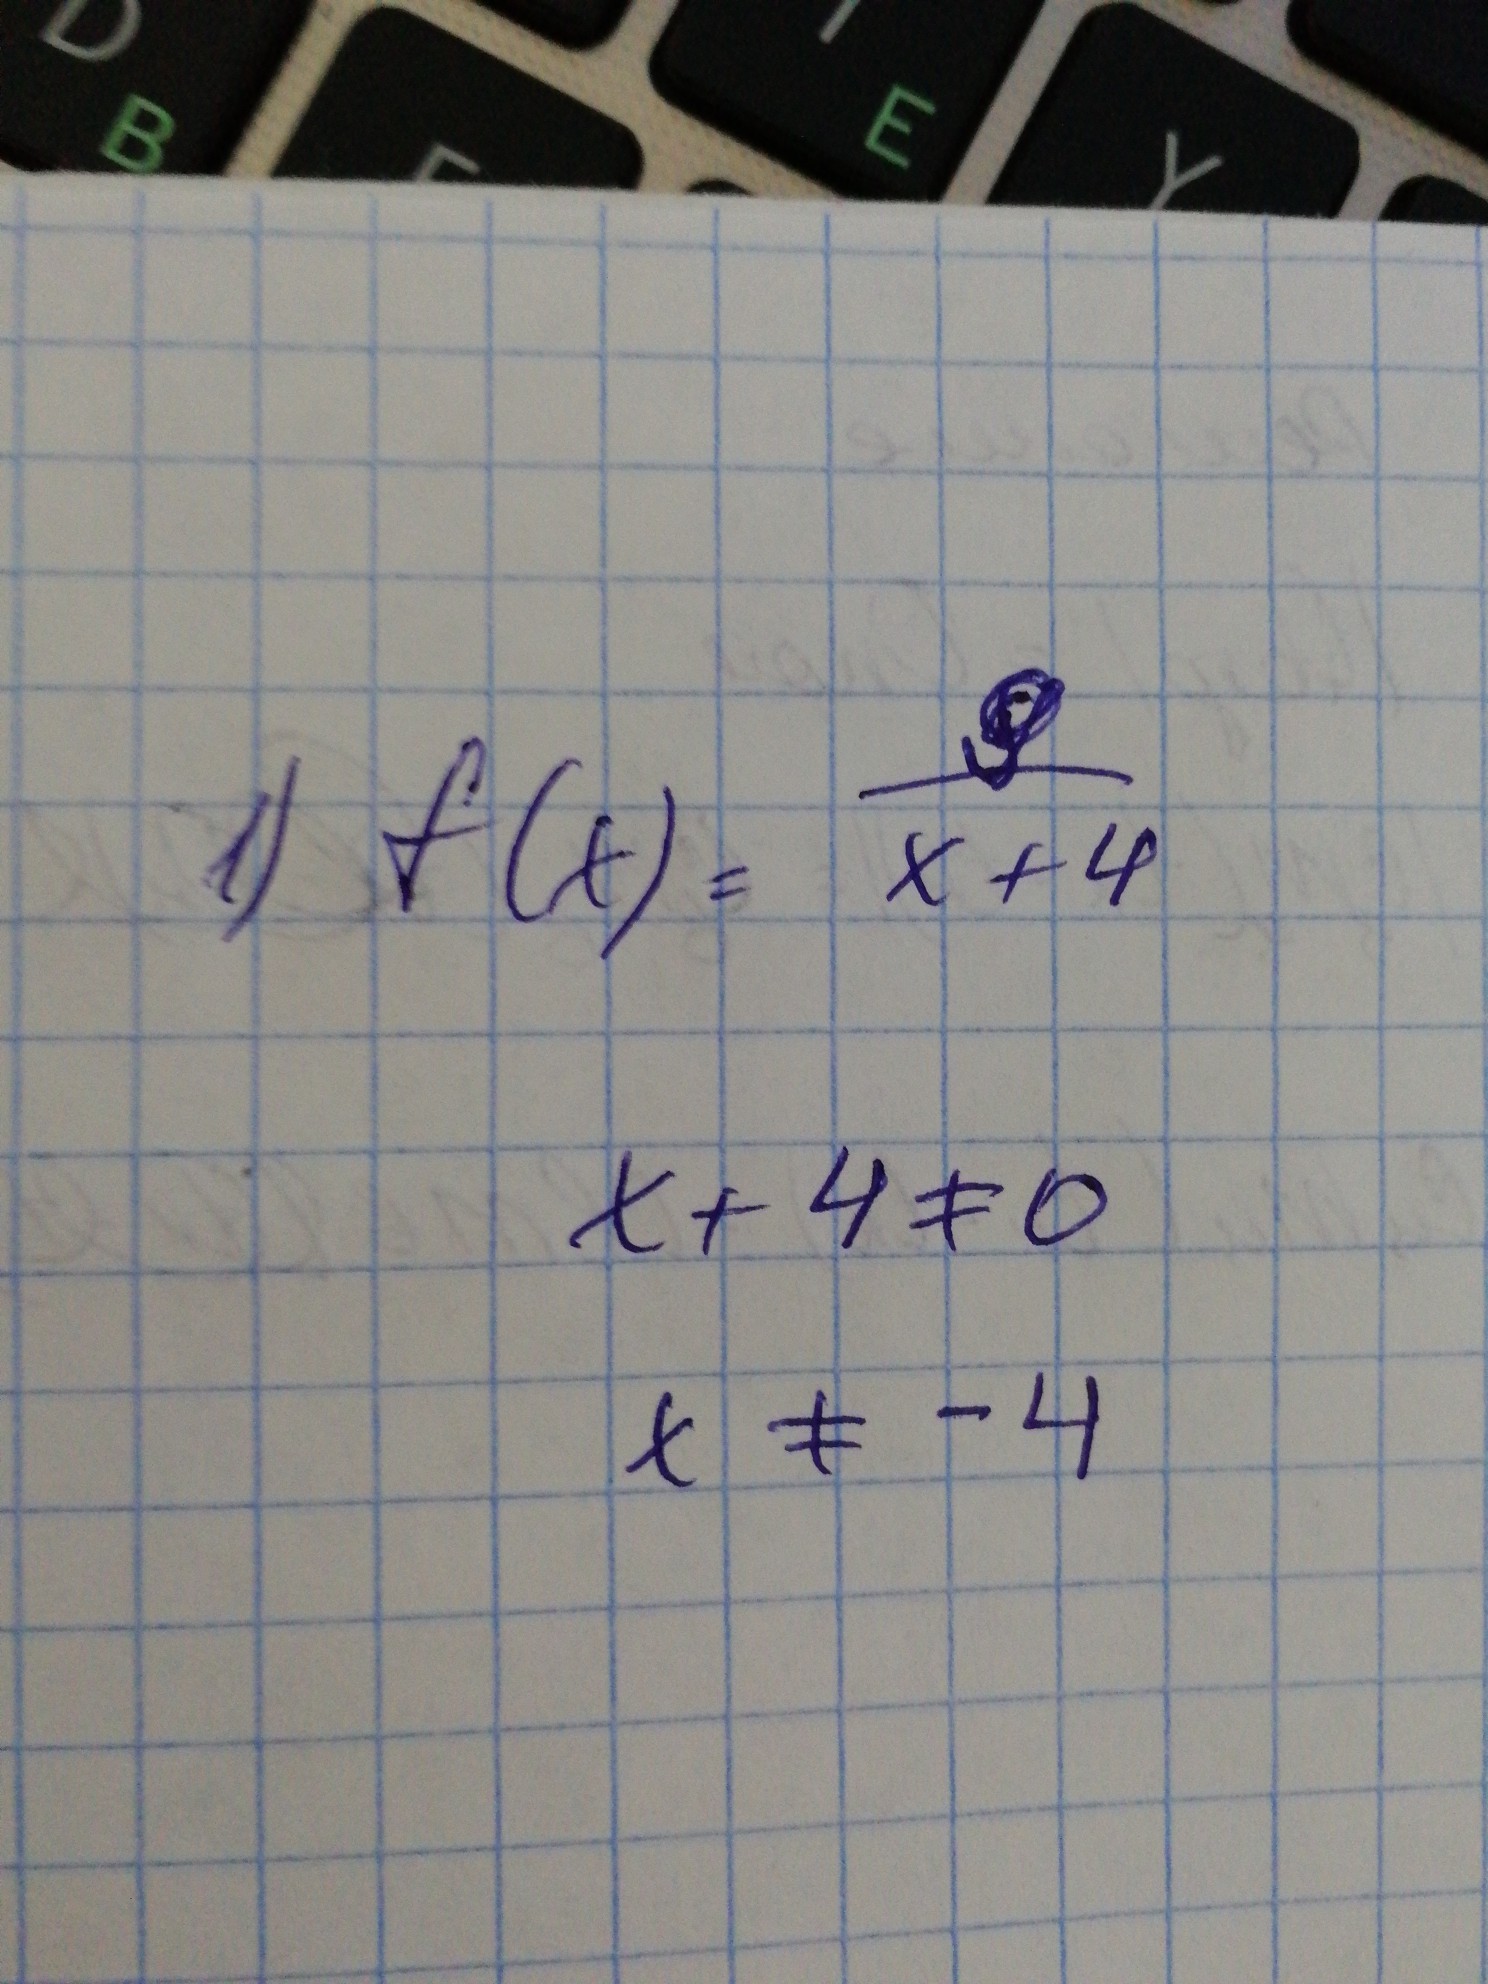 D B F E Y
1) f(x) = 9/(x+4)
x + 4 ≠ 0
x ≠ -4